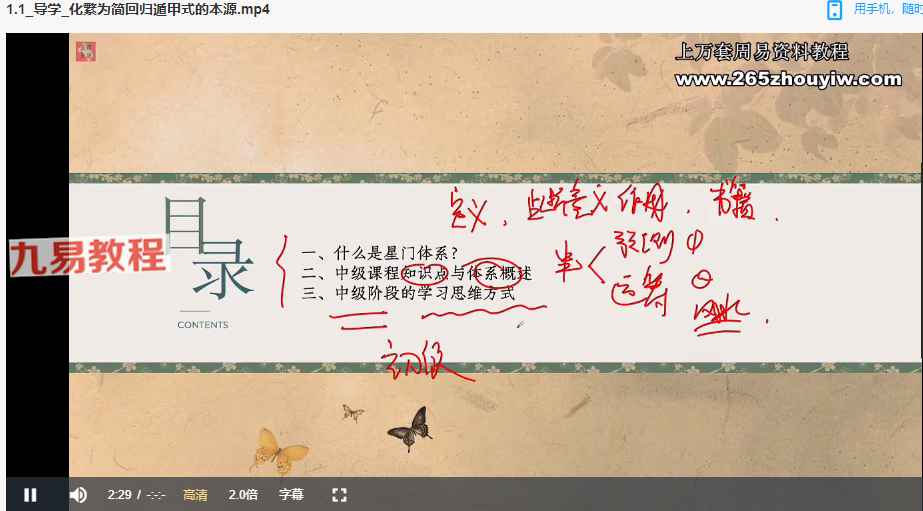 1.1_导学_化繁为简回归遁甲式的本源.mp4
用手机，随时
上万套周易资料教程
www.265zhouyiw.com
九易教程
目录
CONTENTS
一、什么是星门体系？
二、中级课程知识点与体系概述
三、中级阶段的学习思维方式
定义
作用
初级
2:29 / -:-:-
高清
2.0倍
字幕